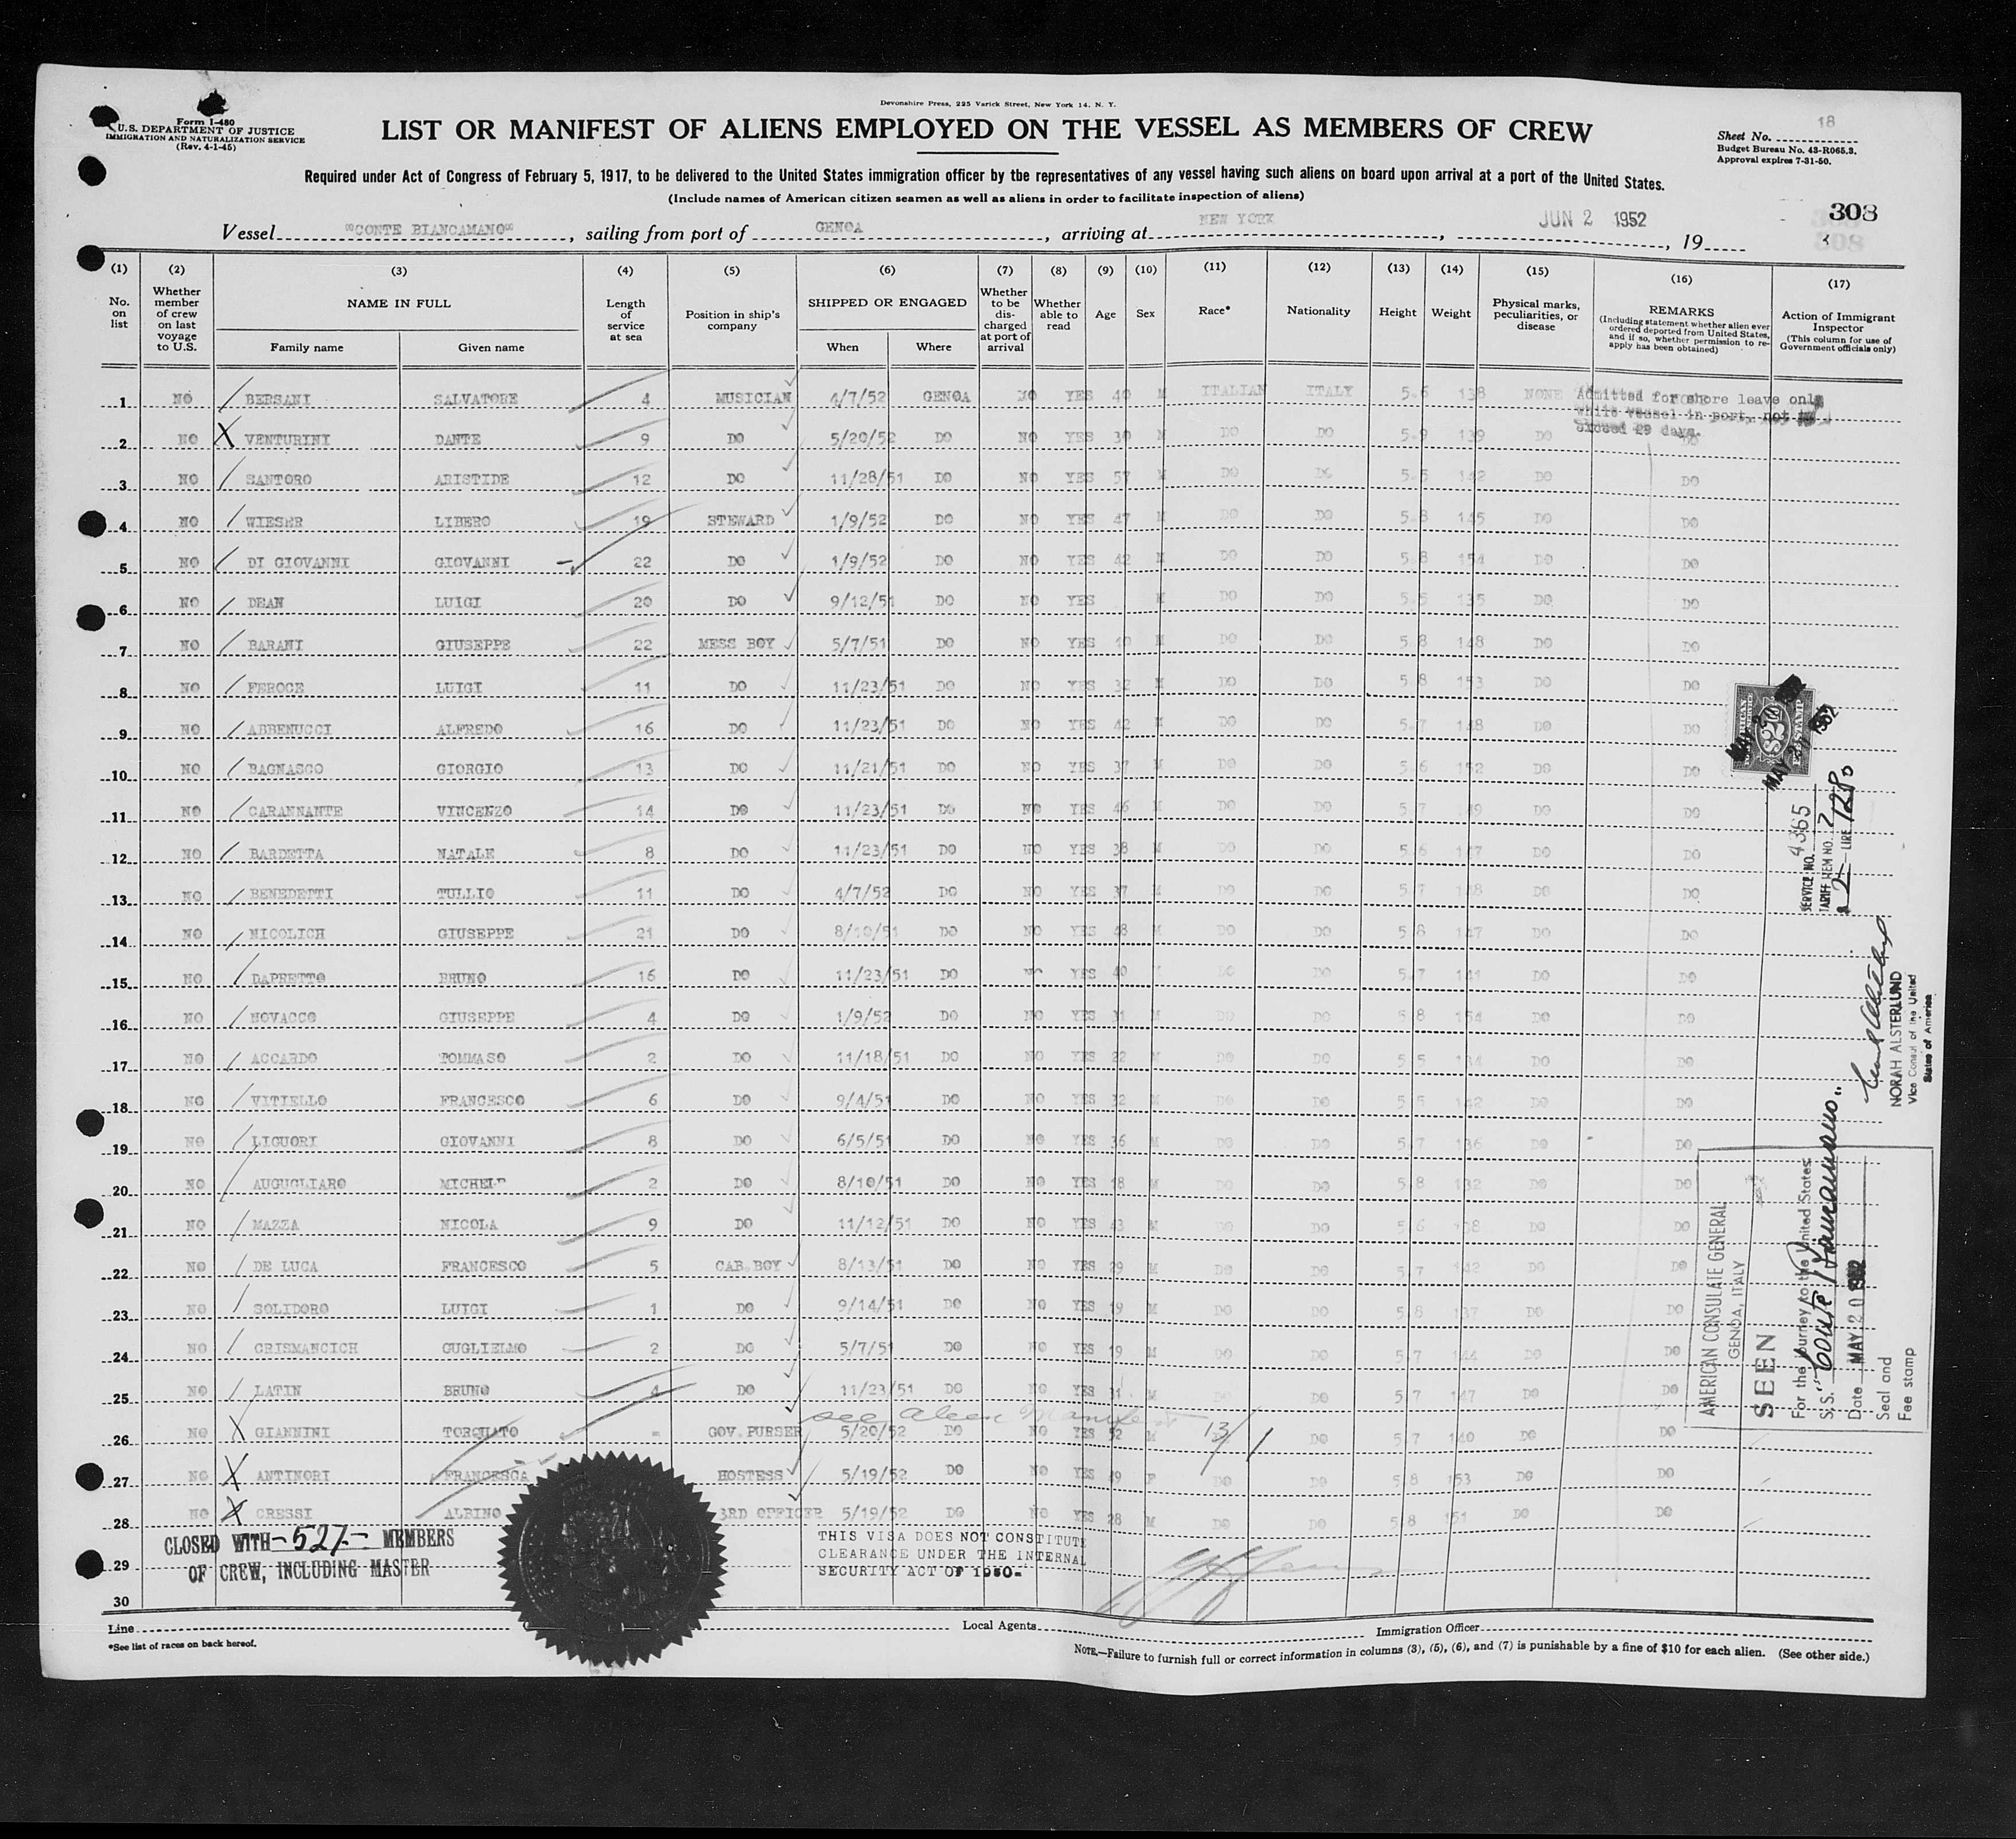 Devonshire Press, 225 Varick Street, New York 14, N. Y.
Form I-480
U.S. DEPARTMENT OF JUSTICE
IMMIGRATION AND NATURALIZATION SERVICE
(Rev. 4-1-45)
LIST OR MANIFEST OF ALIENS EMPLOYED ON THE VESSEL AS MEMBERS OF CREW
Sheet No. 18
Budget Bureau No. 43-R065.3.
Approval expires 7-31-50.
Required under Act of Congress of February 5, 1917, to be delivered to the United States immigration officer by the representatives of any vessel having such aliens on board upon arrival at a port of the United States.
(Include names of American citizen seamen as well as aliens in order to facilitate inspection of aliens)
308
Vessel "CONTE BIANCAMANO", sailing from port of GENOA, arriving at NEW YORK, JUN 2 1952, 19
(1) (2) (3) (4) (5) (6) (7) (8) (9) (10) (11) (12) (13) (14) (15) (16) (17)
No. on list
Whether member of crew on last voyage to U.S.
NAME IN FULL
Family name Given name
Length of service at sea
Position in ship's company
SHIPPED OR ENGAGED
When Where
Whether to be discharged at port of arrival
Whether able to read
Age
Sex
Race*
Nationality
Height
Weight
Physical marks, peculiarities, or disease
REMARKS
(Including statement whether alien ever ordered deported from United States, and if so, whether permission to reapply has been obtained)
Action of Immigrant Inspector
(This column for use of Government officials only)
1 NO BERSANI SALVATORE 4 MUSICIAN 4/7/52 GENOA NO YES 40 M ITALIAN ITALY 5.6 138 NONE
Admitted for shore leave only
while vessel in port, not to
exceed 29 days.
2 NO X VENTURINI DANTE 9 DO 5/20/52 DO NO YES 30 M DO DO 5.9 139 DO DO
3 NO SANTORO ARISTIDE 12 DO 11/28/51 DO NO YES 57 M DO DO 5.5 142 DO DO
4 NO WIESER LIBERO 19 STEWARD 1/9/52 DO NO YES 47 M DO DO 5.8 145 DO DO
5 NO DI GIOVANNI GIOVANNI 22 DO 1/9/52 DO NO YES 42 M DO DO 5.8 154 DO DO
6 NO DEAN LUIGI 20 DO 9/12/51 DO NO YES M DO DO 5.5 135 DO DO
7 NO BARANI GIUSEPPE 22 MESS BOY 5/7/51 DO NO YES M DO DO 5.8 148 DO DO
8 NO FEROCE LUIGI 11 DO 11/23/51 DO NO YES 32 M DO DO 5.8 153 DO DO
9 NO ABBENUCCI ALFREDO 16 DO 11/23/51 DO NO YES 42 M DO DO 5.7 148 DO DO
10 NO BAGNASCO GIORGIO 13 DO 11/21/51 DO NO YES 37 M DO DO 5.6 152 DO DO
11 NO CARANNANTE VINCENZO 14 DO 11/23/51 DO NO YES 46 M DO DO 5.7 149 DO DO
12 NO BARDETTA NATALE 8 DO 11/23/51 DO NO YES 38 M DO DO 5.6 147 DO DO
13 NO BENEDETTI TULLIO 11 DO 4/7/52 DO NO YES 37 M DO DO 5.7 148 DO DO
14 NO NICOLICH GIUSEPPE 21 DO 8/10/51 DO NO YES 48 M DO DO 5.8 147 DO DO
15 NO DAPRETTO BRUNO 16 DO 11/23/51 DO NO YES 40 DO DO 5.7 141 DO DO
16 NO NOVACCO GIUSEPPE 4 DO 1/9/52 DO NO YES 31 M DO DO 5.8 154 DO DO
17 NO ACCARDO TOMMASO 2 DO 11/18/51 DO NO YES 22 M DO DO 5.5 134 DO DO
18 NO VITIELLO FRANCESCO 6 DO 9/4/51 DO NO YES 32 M DO DO 5.5 142 DO DO
19 NO LIGUORI GIOVANNI 8 DO 6/5/51 DO NO YES 36 M DO DO 5.7 136 DO DO
20 NO AUGUGLIARO MICHELE 2 DO 8/10/51 DO NO YES 18 M DO DO 5.8 132 DO DO
21 NO MAZZA NICOLA 9 DO 11/12/51 DO NO YES 43 M DO DO 5.6 138 DO DO
22 NO DE LUCA FRANCESCO 5 CAB.BOY 8/13/51 DO NO YES 29 M DO DO 5.7 142 DO DO
23 NO SOLIDORO LUIGI 1 DO 9/14/51 DO NO YES 19 M DO DO 5.8 137 DO DO
24 NO CRISMANCICH GUGLIELMO 2 DO 5/7/51 DO NO YES 19 M DO DO 5.7 144 DO DO
25 NO LATIN BRUNO 4 DO 11/23/51 DO NO YES 31 M DO DO 5.7 147 DO DO
see Alien Manifest 13/1
26 NO X GIANNINI TORQUATO - GOV.PURSER 5/20/52 DO NO YES 52 M DO 5.7 140 DO DO
27 NO X ANTINORI FRANCESCA HOSTESS 5/19/52 DO NO YES 49 F DO DO 5.8 153 DO DO
28 NO X CRESSI ALBINO 3RD OFFICER 5/19/52 DO NO YES 28 M DO DO 5.8 151 DO DO
29
30
CLOSED WITH -527- MEMBERS
OF CREW, INCLUDING MASTER
THIS VISA DOES NOT CONSTITUTE
CLEARANCE UNDER THE INTERNAL
SECURITY ACT OF 1950.
SERVICE NO. 4365
TARIFF ITEM NO. 2
$ 2- LIRE 1280
NORAH ALSTERLUND
Vice Consul of the United
States of America
AMERICAN CONSULATE GENERAL
GENOA, ITALY
SEEN
For the journey to the United States
S.S. "Conte Biancamano"
Date MAY 20 1952
Seal and
Fee stamp
Line Local Agents Immigration Officer
*See list of races on back hereof.
NOTE.—Failure to furnish full or correct information in columns (3), (5), (6), and (7) is punishable by a fine of $10 for each alien. (See other side.)